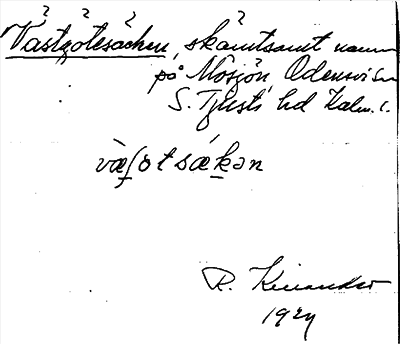 Västgötesäcken, skämtsamt namn
på Mosjön, Odensvi sn
S. Tjusts hd Kalm. l.
väʃotsäkən
R. Kinander
1924